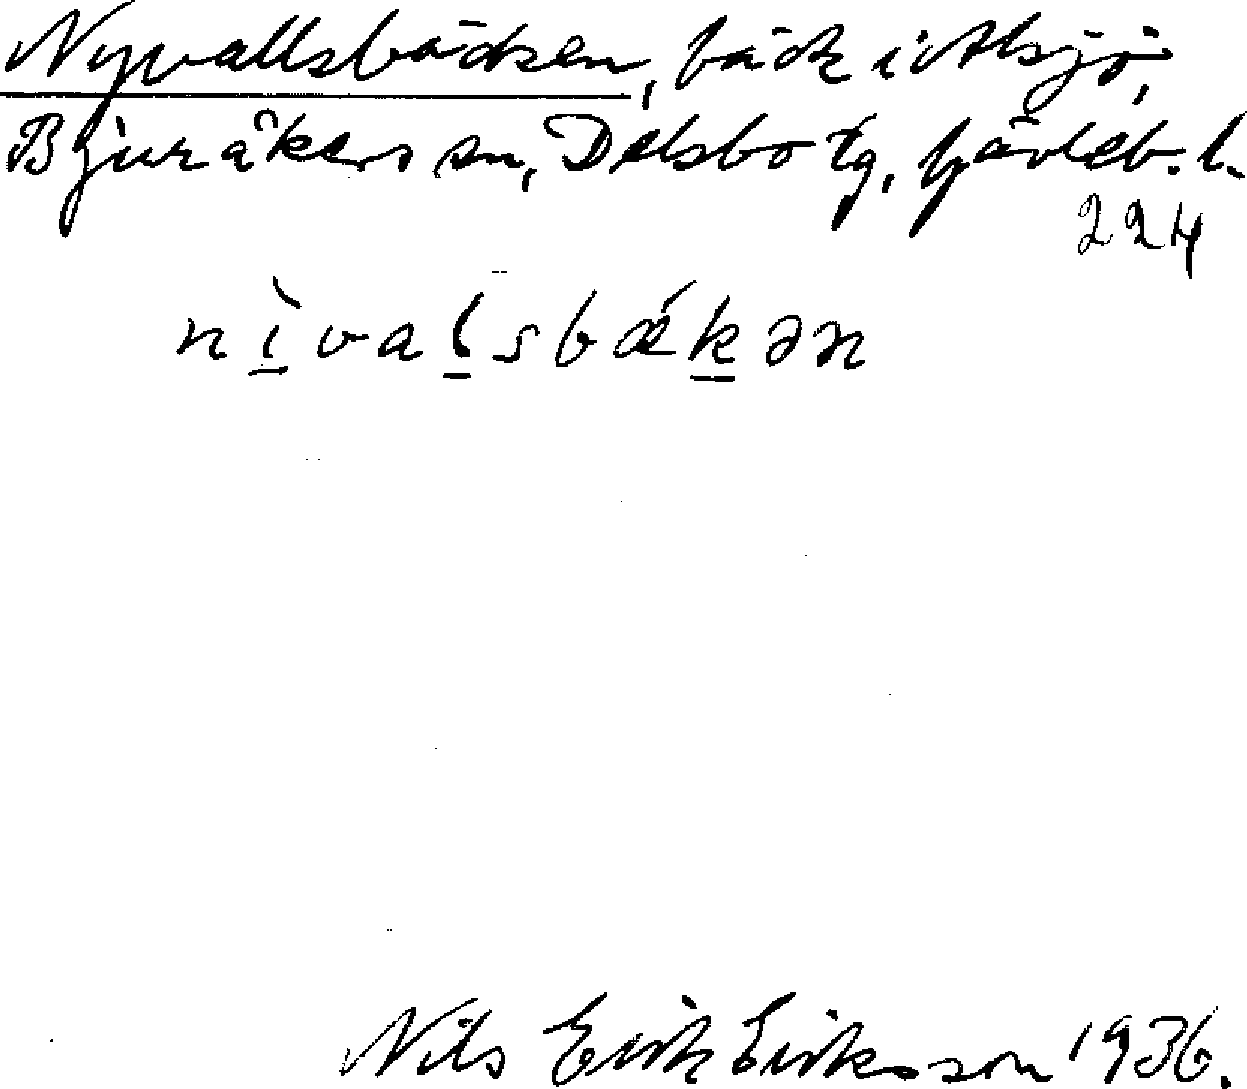 Nyvallsbäcken, bäck i Alsjö,
Bjuråkers sn, Delsbo tg, Gävleb. l.
224
nìvalsbǽkən
Nils Erik Eriksson 1936.